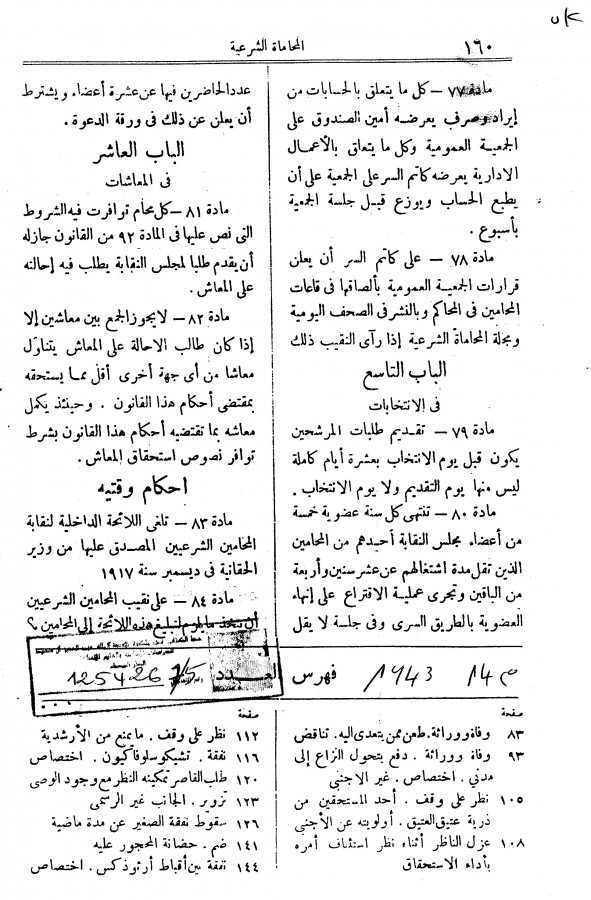 ١٦٠
المحاماة الشرعية
مادة ٧٧ — كل ما يتعلق بالحسابات من
إيراد وصرف يعرضه أمين الصندوق على
الجمعية العمومية وكل ما يتعلق بالأعمال
الادارية يعرضه كاتم السر على الجمعية على أن
يطبع الحساب ويوزع قبل جلسة الجمعية
بأسبوع .
مادة ٧٨ — على كاتم السر أن يعلن
قرارات الجمعية العمومية بألصاقها فى قاعات
المحامين فى المحاكم وبالنشر فى الصحف اليومية
ومجلة المحاماة الشرعية إذا رآى النقيب ذلك
الباب التاسع
فى الانتخابات
مادة ٧٩ — تقديم طلبات المرشحين
يكون قبل يوم الانتخاب بعشرة أيام كاملة
ليس منها يوم التقديم ولا يوم الانتخاب .
مادة ٨٠ — تنتهى كل سنة عضوية خمسة
من أعضاء مجلس النقابة أحيدهم من المحامين
الذين تقل مدة اشتغالهم عن عشر سنين وأربعة
من الباقين وتجرى عملية الاقتراع على إنهاء
العضوية بالطريق السرى وفى جلسة لا يقل
عدد الحاضرين فيها عن عشرة أعضاء ويشترط
أن يعلن عن ذلك فى ورقة الدعوة .
الباب العاشر
فى المعاشات
مادة ٨١ — كل محام توافرت فيه الشروط
التى نص عليها فى المادة ٩٢ من القانون جاز له
أن يقدم طلبا لمجلس النقابة يطلب فيه إحالته
على المعاش .
مادة ٨٢ — لا يجوز الجمع بين معاشين إلا
إذا كان طالب الاحالة على المعاش يتناول
معاشا من أى جهة أخرى أقل مما يستحقه
بمقتضى أحكام هذا القانون . وحينئذ يكمل
معاشه بما تقتضيه أحكام هذا القانون بشرط
توافر نصوص استحقاق المعاش .
احكام وقتيه
مادة ٨٣ — تلغى اللائحة الداخلية لنقابة
المحامين الشرعيين المصدق عليها من وزير
الحقانية فى ديسمبر سنة ١٩١٧
مادة ٨٤ — على نقيب المحامين الشرعيين
أن يتخذ ما يلزم لتبليغ هذه اللائحة إلى المحامين
فهرس العدد
1943
125426
صفحة
٨٣ وفاة ووراثة . طعن ممن يتعدى اليه . تناقض
٩٣ وفاة ووراثة . دفع بتحول النزاع إلى
مدنى . اختصاص . غير الاجنبى
١٠٥ نظر على وقف . أحد المستحقين من
ذرية عتيق العتيق . أولويته عن الأجنبى
١٠٨ عزل الناظر أثناء نظر استئناف أمره
بأداء الاستحقاق
صفحة
١١٢ نظر على وقف . ما يمنع من الأرشدية
١١٦ نفقة . تشيكوسلوفاكيون . اختصاص
١٢٠ طلب القاصر تمكينه النظر مع وجود الوصى
١٢٣ تزوير . الجانب غير الرسمى
١٢٦ سقوط نفقة الصغير عن مدة ماضية
١٤١ ضم . حضانة المحجور عليه
١٤٤ نفقة بين أقباط أرثوذكس . اختصاص